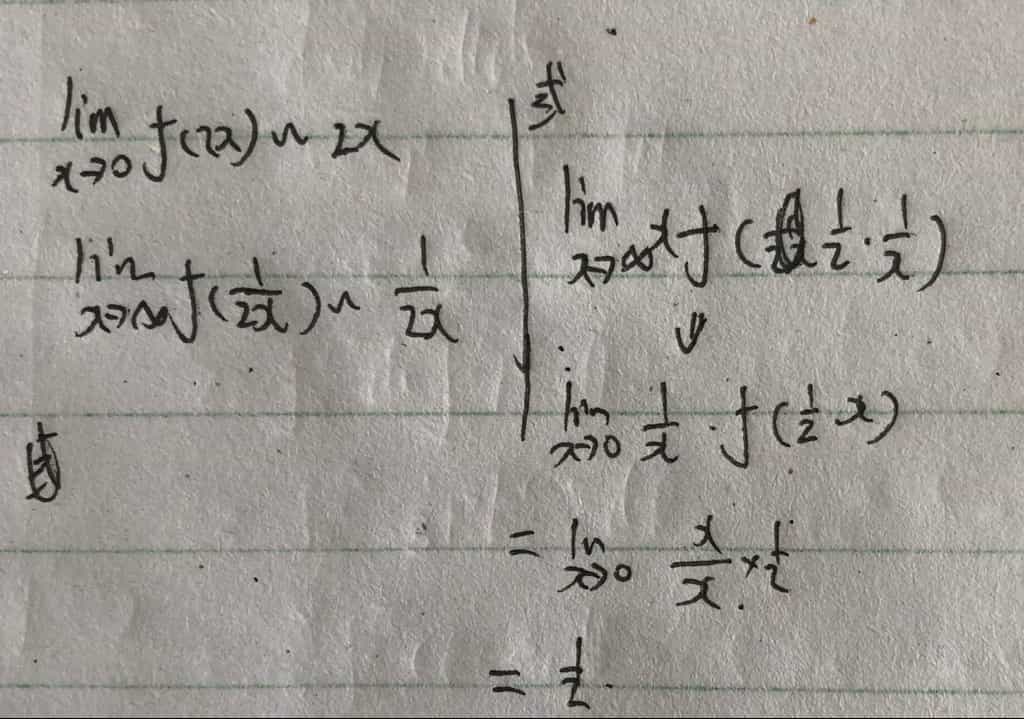 lim x→0 f(2x) ~ 2x
lim x→∞ f(1/2x) ~ 1/2x
求
lim x→∞ x f(1/2 · 1/x)
⇓
lim x→0 1/x · f(1/2 x)
= lim x→0 x/x × 1/2
= 1/2.